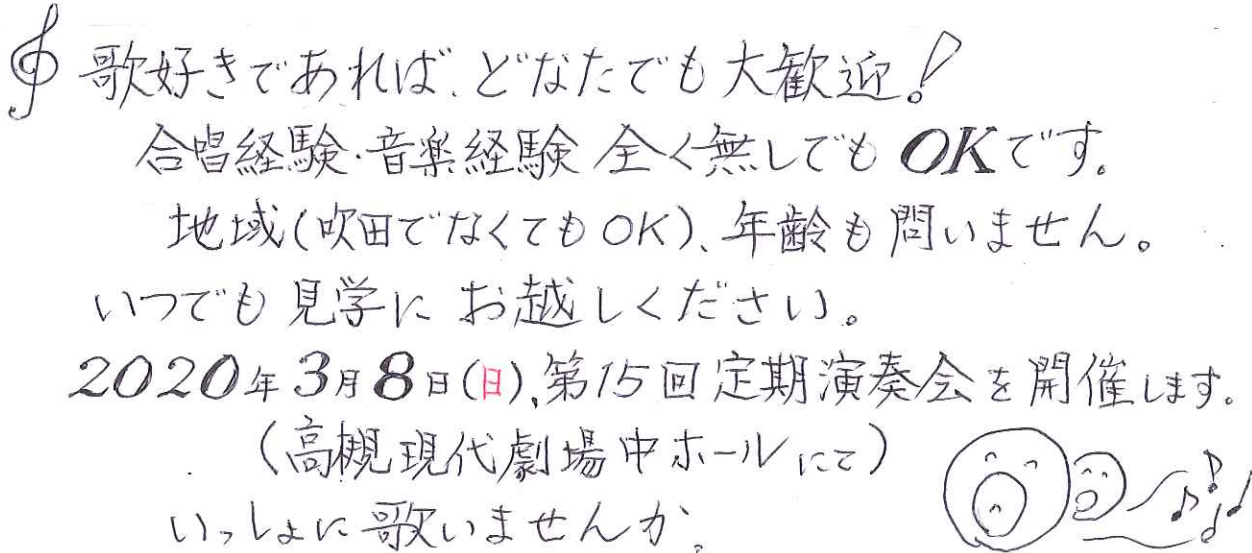 歌好きであれば、どなたでも大歓迎!
合唱経験・音楽経験 全く無しでもOKです。
地域(吹田でなくてもOK)、年齢も問いません。
いつでも見学に お越しください。
2020年3月8日(日)、第15回定期演奏会を開催します。
(高槻現代劇場中ホールにて)
いっしょに歌いませんか。